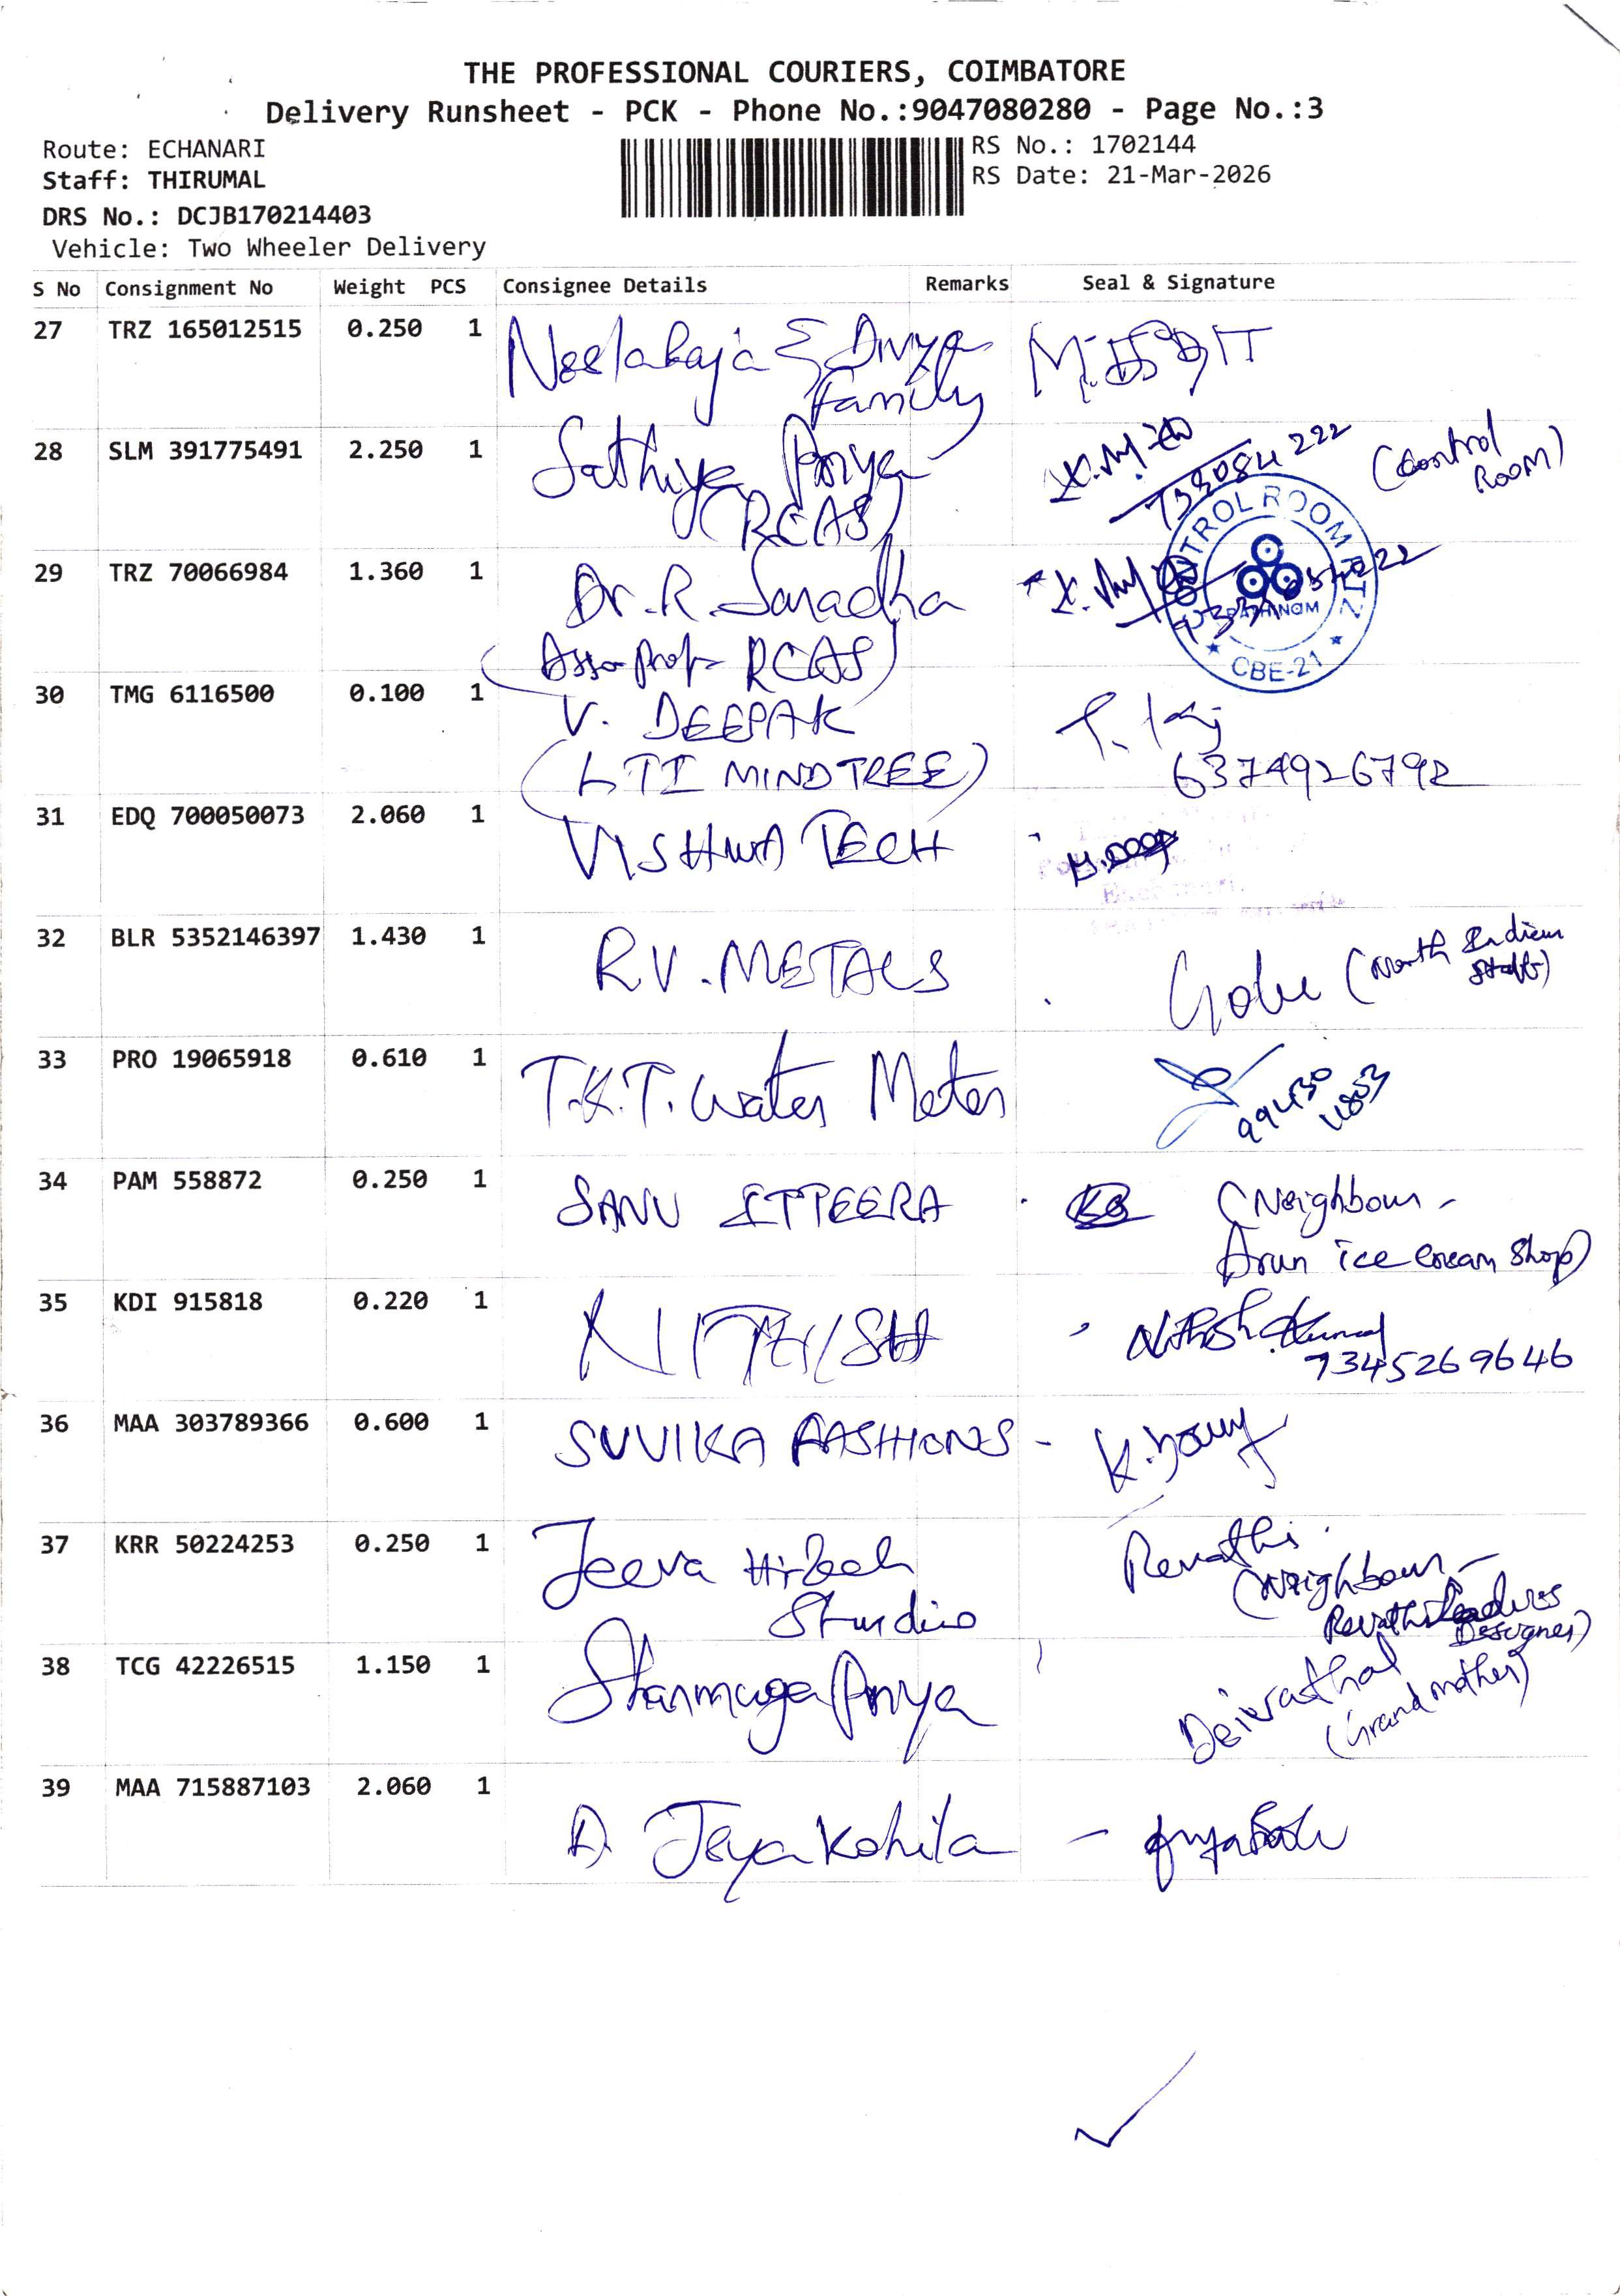 THE PROFESSIONAL COURIERS, COIMBATORE
Delivery Runsheet - PCK - Phone No.:9047080280 - Page No.:3
Route: ECHANARI
Staff: THIRUMAL
DRS No.: DCJB170214403
Vehicle: Two Wheeler Delivery
RS No.: 1702144
RS Date: 21-Mar-2026
S No Consignment No Weight PCS Consignee Details Remarks Seal & Signature
27 TRZ 165012515 0.250 1 Neelakaja & Divya
Family
28 SLM 391775491 2.250 1 Sathiya Priya
(RCAS)
(Control
Room)
CONTROL ROOM
CBE-21
29 TRZ 70066984 1.360 1 Dr. R. Saradha
(Asso Prof - RCAS)
30 TMG 6116500 0.100 1 V. DEEPAK
(LTI MINDTREE)
6374926792
31 EDQ 700050073 2.060 1 VISHWA TECH
32 BLR 5352146397 1.430 1 R.V. METALS
(North Indian
Staff)
33 PRO 19065918 0.610 1 T.K.T. Water Meter
34 PAM 558872 0.250 1 SANU ITTEERA
(Neighbour -
Arun ice cream shop)
35 KDI 915818 0.220 1 NITHISH
7345269646
36 MAA 303789366 0.600 1 SUVIKA FASHIONS -
37 KRR 50224253 0.250 1 Jeeva Hitech
Studio
Revathi
(Neighbour -
Revathi
Designer)
38 TCG 42226515 1.150 1 Shanmuga Priya
(Grand mother)
39 MAA 715887103 2.060 1 D. Jeya Kohila -